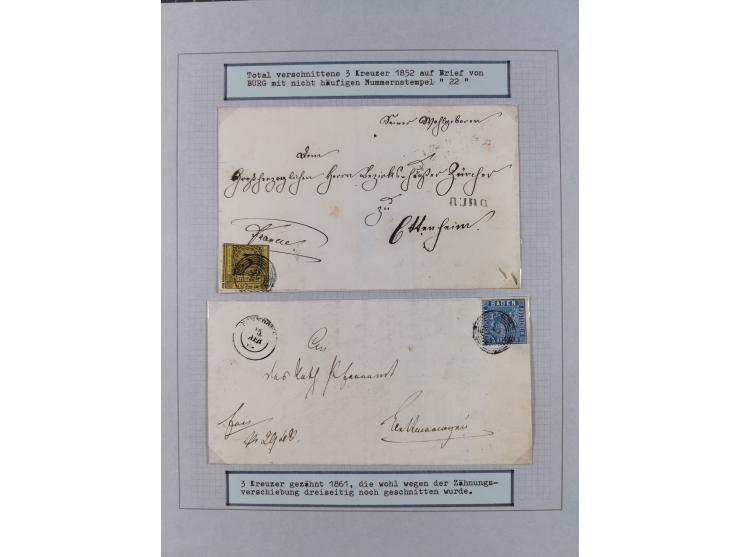 Total verschnittene 3 Kreuzer 1852 auf Brief von
BURG mit nicht häufigen Nummernstempel " 22 "
Seiner Wohlgeboren
Dem
Großherzoglichen Herrn Bezirks Zürcher
zu
BURG
Ettenheim.
Franco.
BADEN
An
das Kath. Pfarramt
3 Kreuzer gezähnt 1861, die wohl wegen der Zähnungs-
verschiebung dreiseitig noch geschnitten wurde.